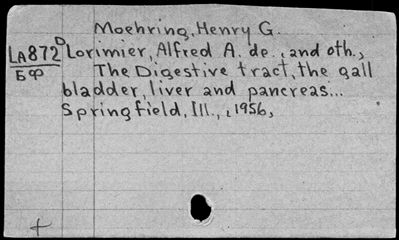 Moehring, Henry G.
LA872 D Lorimier, Alfred A. de., and oth.,
БФ The Digestive tract, the gall
bladder, liver and pancreas...
Springfield, Ill., , 1956,